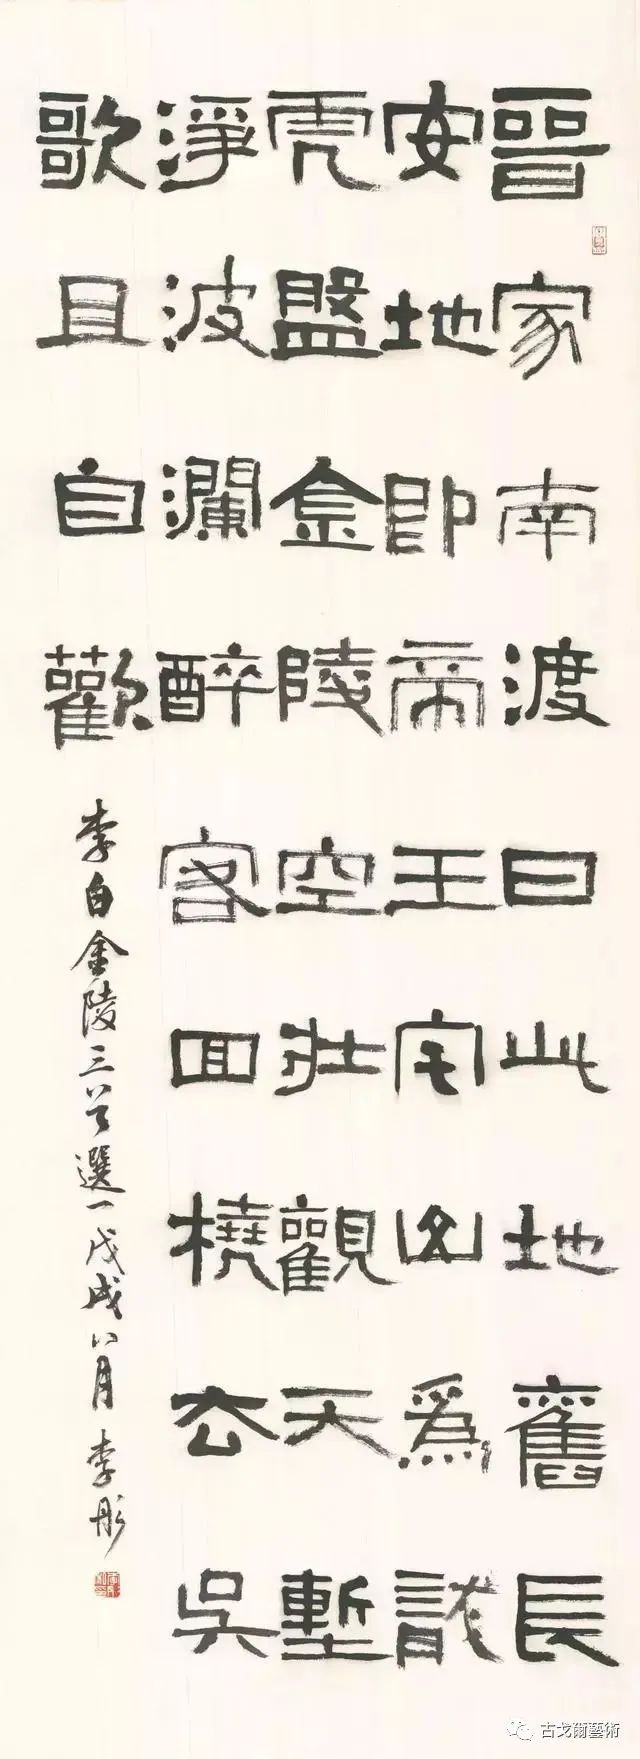 晉家南渡日此地舊長
安地即帝王宅山爲龍
虎盤金陵空壯觀天塹
淨波瀾醉客回橈去吳
歌且自歡
李白金陵三首選一戊戌八月李彤
古戈爾藝術